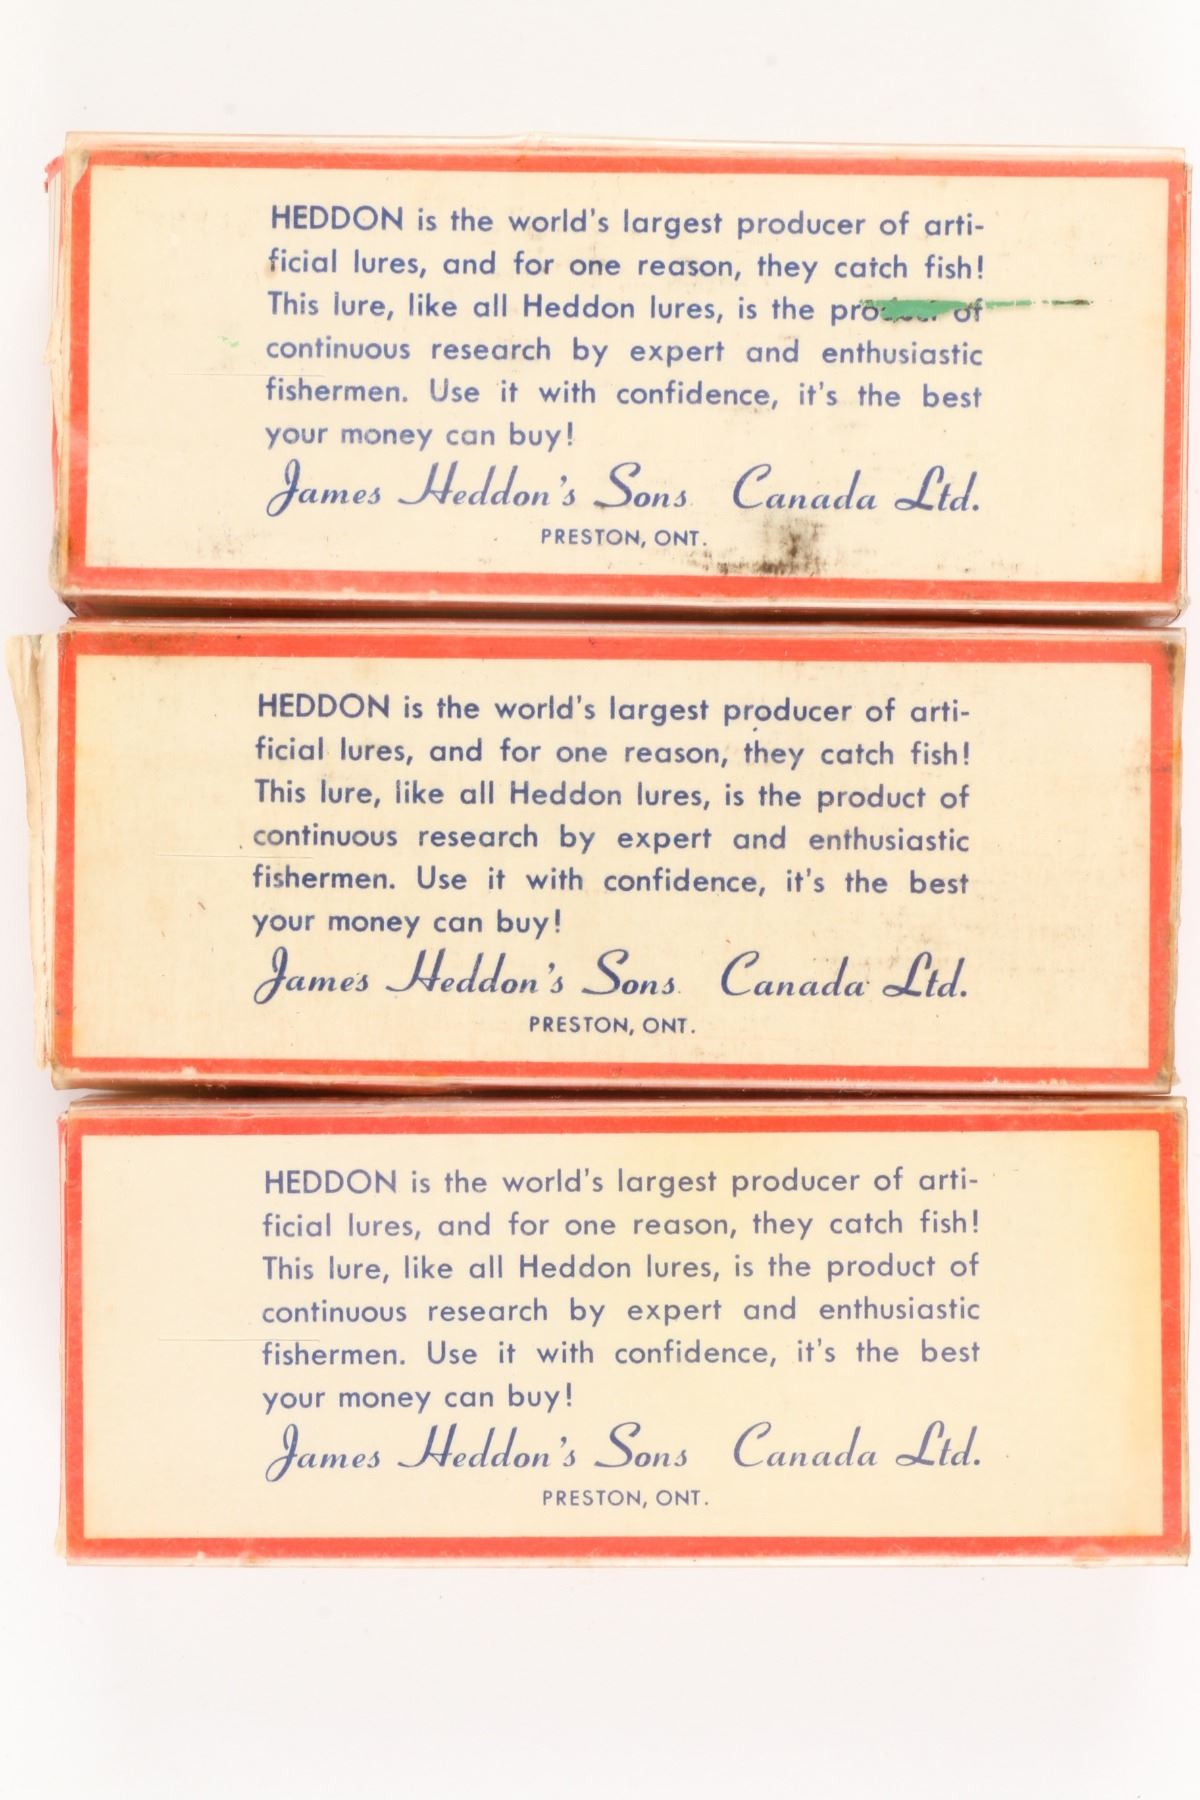 HEDDON is the world's largest producer of arti-
ficial lures, and for one reason, they catch fish!
This lure, like all Heddon lures, is the of
continuous research by expert and enthusiastic
fishermen. Use it with confidence, it's the best
your money can buy!
James Heddon's Sons Canada Ltd.
PRESTON, ONT.
HEDDON is the world's largest producer of arti-
ficial lures, and for one reason, they catch fish!
This lure, like all Heddon lures, is the product of
continuous research by expert and enthusiastic
fishermen. Use it with confidence, it's the best
your money can buy!
James Heddon's Sons Canada Ltd.
PRESTON, ONT.
HEDDON is the world's largest producer of arti-
ficial lures, and for one reason, they catch fish!
This lure, like all Heddon lures, is the product of
continuous research by expert and enthusiastic
fishermen. Use it with confidence, it's the best
your money can buy!
James Heddon's Sons Canada Ltd.
PRESTON, ONT.